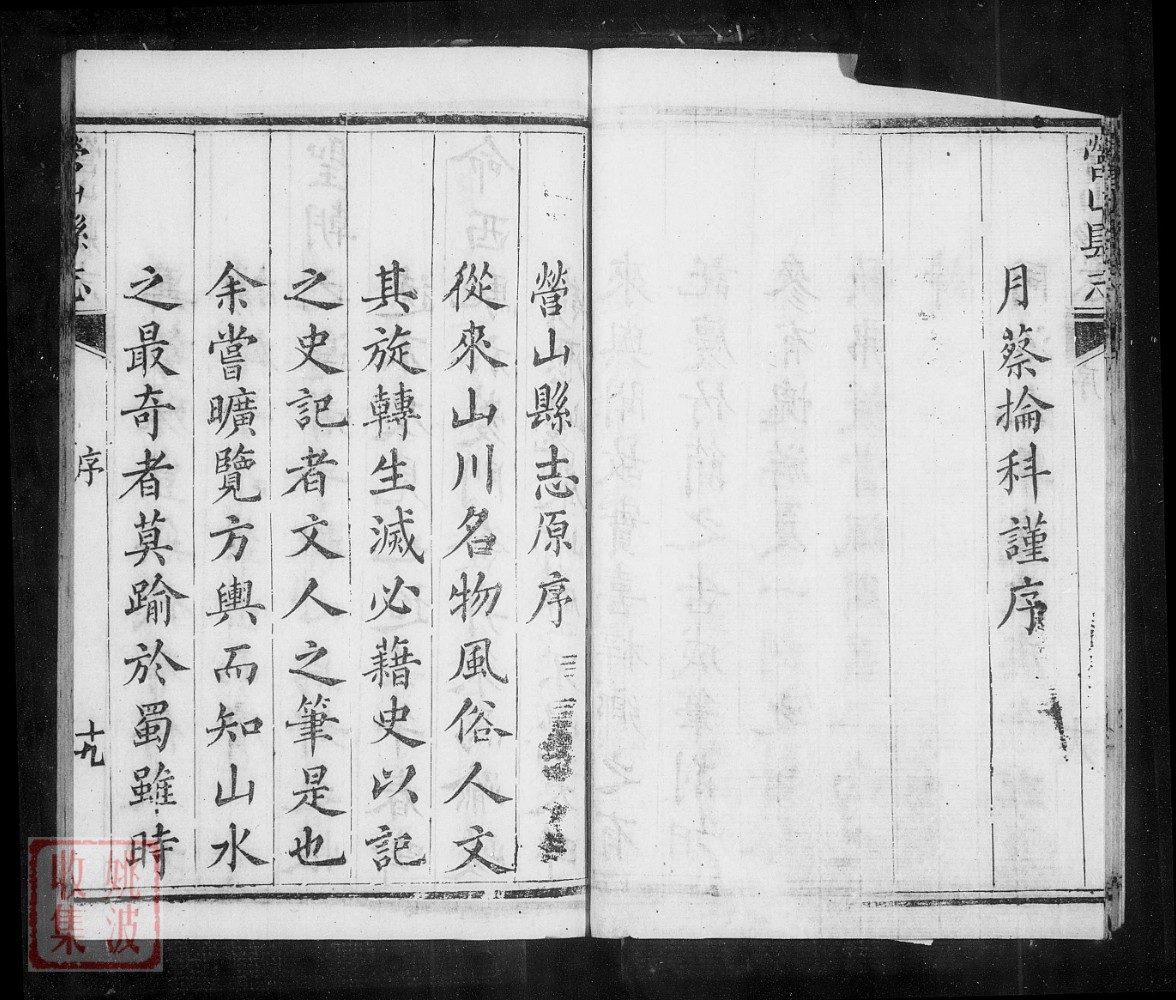 月蔡掄科謹序
營山縣志原序
從來山川名物風俗人文
其旋轉生滅必藉史以記
之史記者文人之筆是也
余嘗曠覽方輿而知山水
之最奇者莫踰於蜀雖時
序
十九
姚波
收集